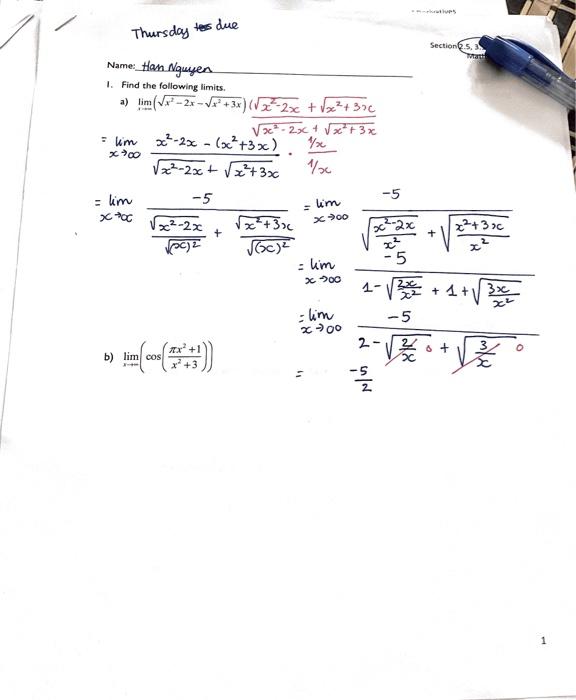 Thursday due
Section 2.5, 3.
Name: Han Nguyen
1. Find the following limits.
a) lim x→∞ (√x²-2x - √x²+3x) (√x²-2x + √x²+3x
√x²-2x + √x²+3x
= lim x→∞ x²-2x - (x²+3x) / √x²-2x + √x²+3x · 1/x / 1/x
= lim x→∞ -5 / √x²-2x / √(x)² + √x²+3x / √(x)² = lim x→∞ -5 / √x²-2x / x² + √x²+3x / x²
= lim x→∞ -5 / 1-√2x/x² + 1+√3x/x²
= lim x→∞ -5 / 2-√2/x 0 + √3/x 0
b) lim x→∞ (cos(πx²+1 / x²+3))
= -5/2
1